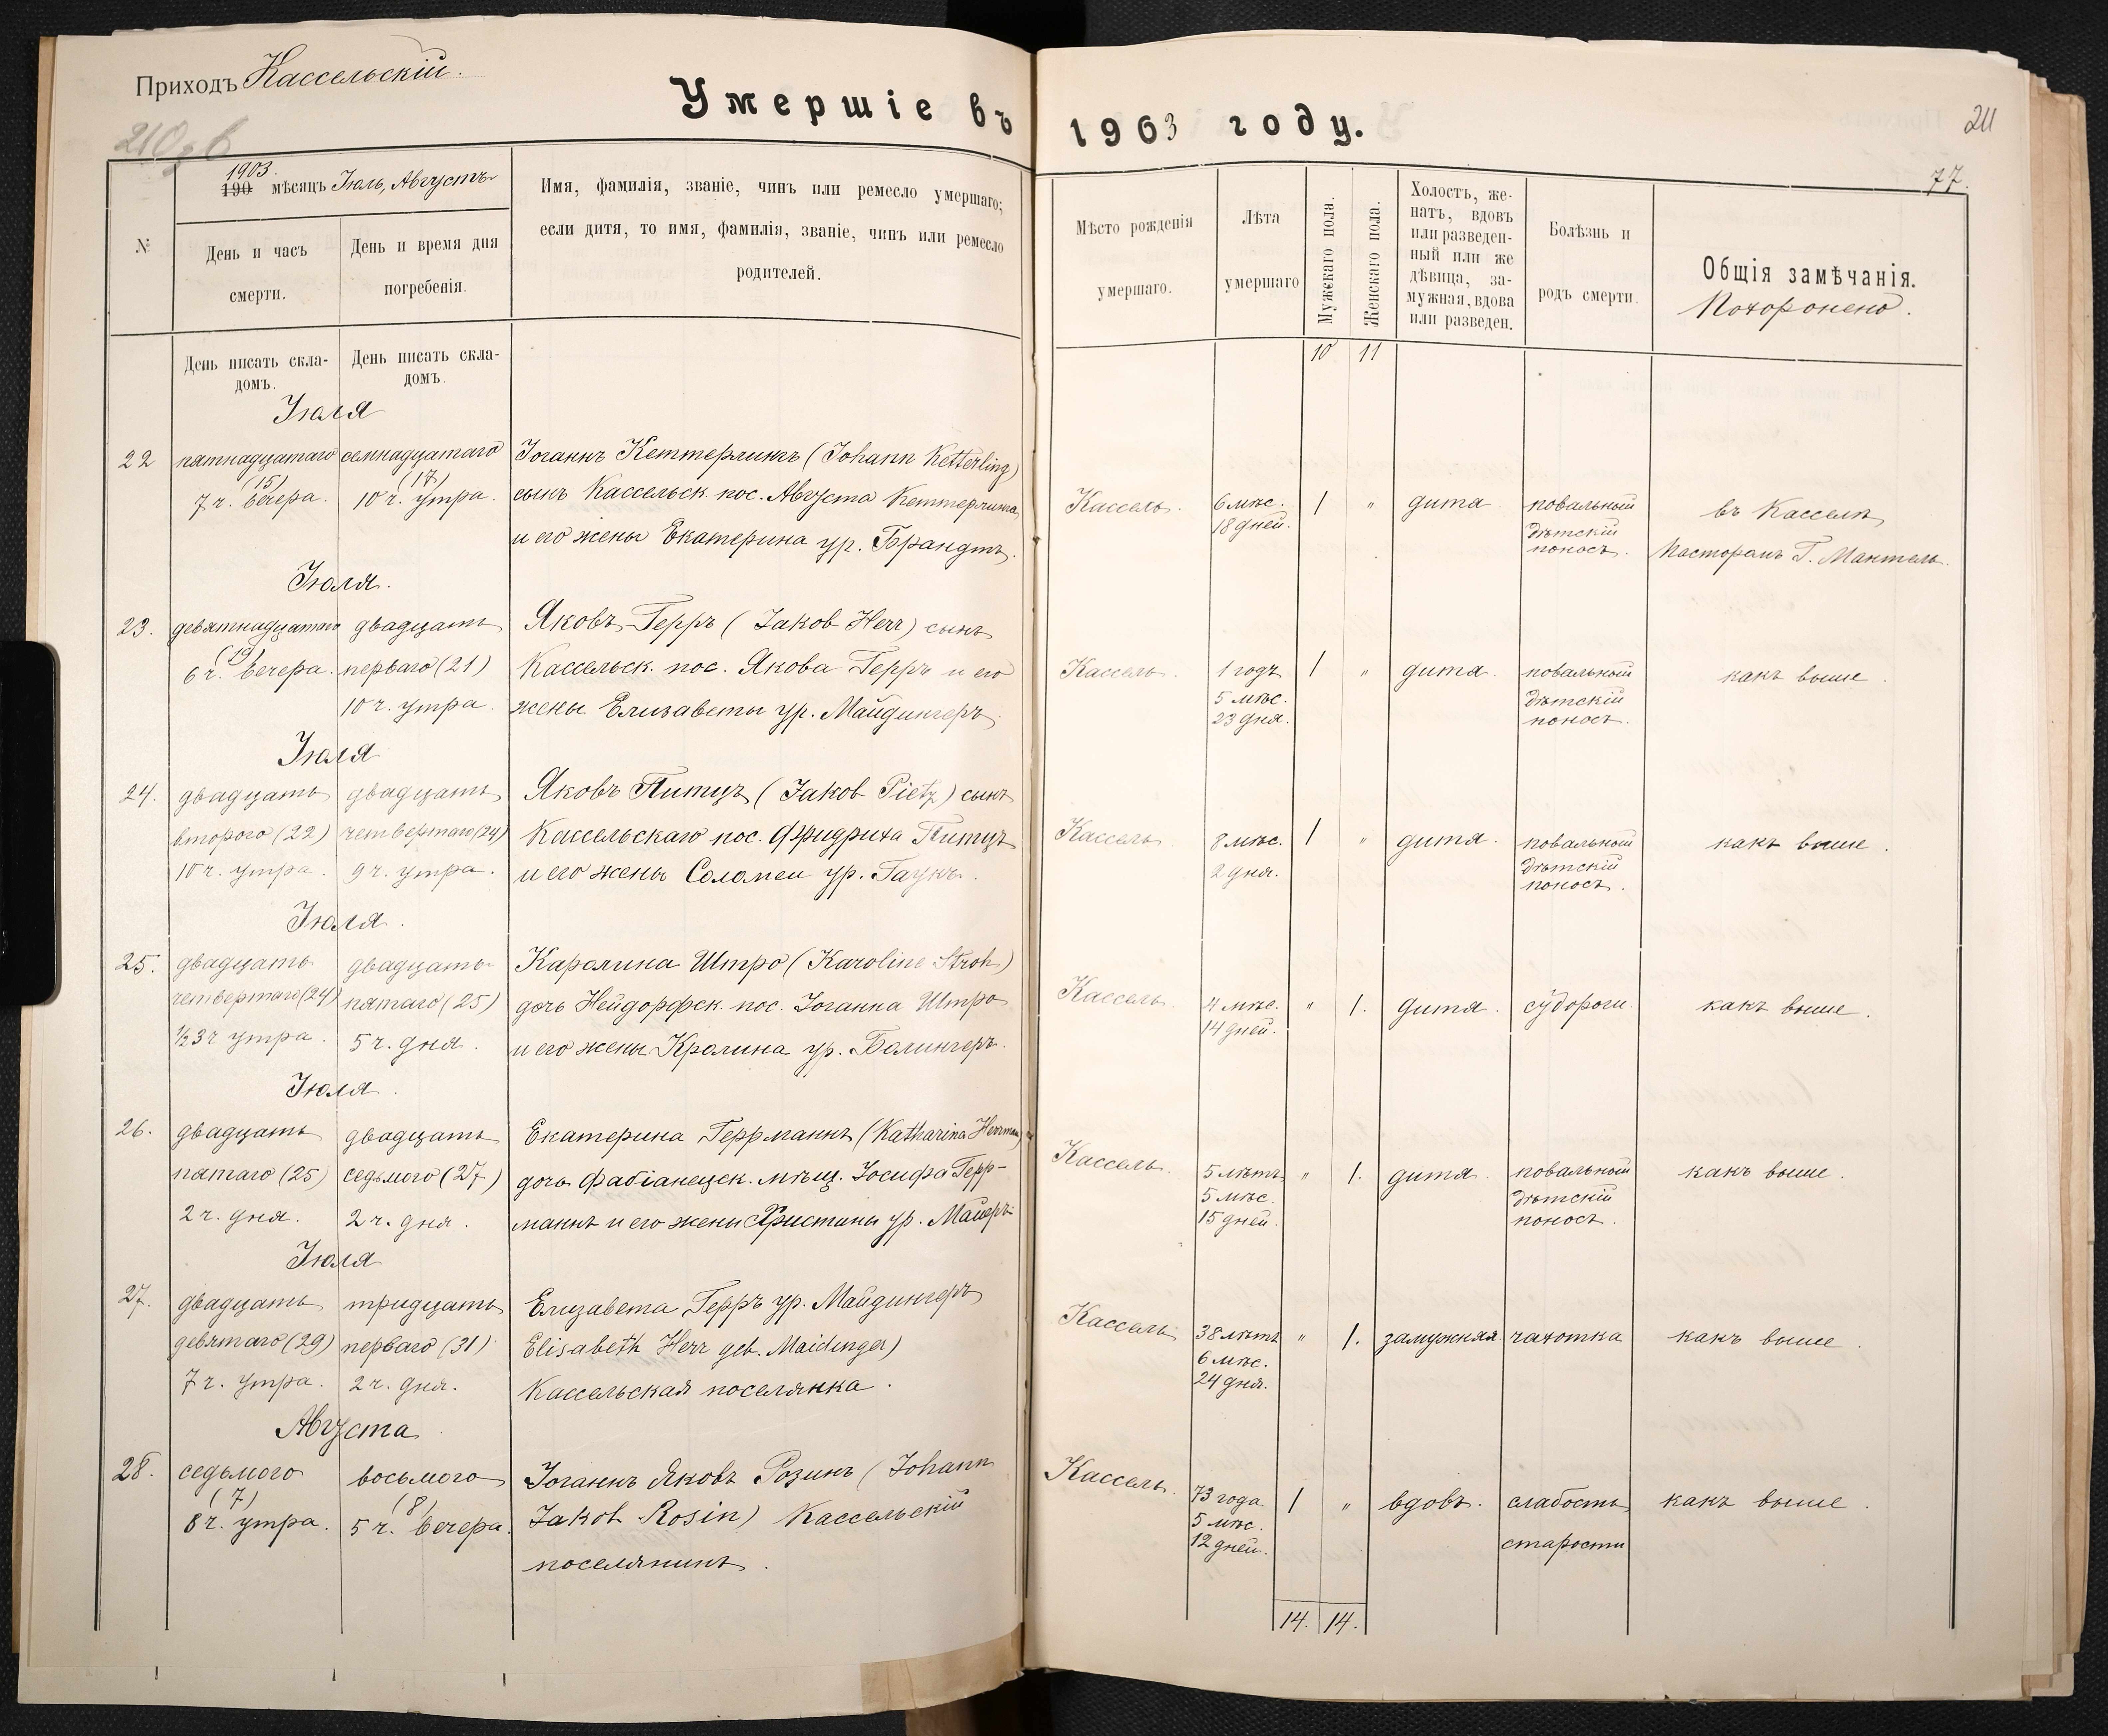 Приходъ Кассельскій.
Умершіе въ 1903 году.
210 об
211
77.
№
1903.
190 мѣсяцъ Іюль, Августъ
День и часъ
смерти.
День и время дня
погребенія.
Имя, фамилія, званіе, чинъ или ремесло умершаго;
если дитя, то имя, фамилія, званіе, чинъ или ремесло
родителей.
Мѣсто рожденія
умершаго.
Лѣта
умершаго
Мужскаго пола.
Женскаго пола.
Холостъ, же-
натъ, вдовъ
или разведен-
ный или же
дѣвица, за-
мужная, вдова
или разведен.
Болѣзнь и
родъ смерти.
Общія замѣчанія.
Похоронено.
День писать скла-
домъ.
День писать скла-
домъ.
10 11
Іюля
22
пятнадцатаго
(15)
7 ч. вечера.
семнадцатаго
(17)
10 ч. утра.
Іоганнъ Кеттерлингъ (Johann Ketterling)
сынъ Кассельск. пос. Августа Кеттерлинга
и его жены Екатерина ур. Брандтъ.
Кассель.
6 мѣс.
18 дней.
1 "
дитя
повальный
дѣтскій
поносъ.
въ Касселѣ
Пасторомъ Г. Мантель.
Іюля.
23.
девятнадцатаго
(19)
6 ч. вечера.
двадцать
перваго (21)
10 ч. утра.
Яковъ Герръ (Jakob Herr) сынъ
Кассельск. пос. Якова Герръ и его
жены Елизаветы ур. Майдингеръ.
Кассель.
1 годъ
5 мѣс.
23 дня.
1 "
дитя.
повальный
дѣтскій
поносъ.
какъ выше.
Іюля
24.
двадцать
второго (22)
10 ч. утра.
двадцать
четвертаго (24)
9 ч. утра.
Яковъ Питцъ (Jakob Pietz) сынъ
Кассельскаго пос. Фридриха Питцъ
и его жены Саломеи ур. Гаукъ.
Кассель
8 мѣс.
2 дня.
1 "
дитя.
повальный
дѣтскій
поносъ.
какъ выше.
Іюля.
25.
двадцать
четвертаго (24)
½ 3 ч утра.
двадцать
пятаго (25)
5 ч. дня.
Каролина Штро (Karoline Stroh)
дочь Нейдорфск. пос. Іоганна Штро
и его жены Кролина ур. Болингеръ.
Кассель
4 мѣс.
14 дней.
" 1.
дитя.
судороги.
какъ выше.
Іюля.
26.
двадцать
пятаго (25)
2 ч. дня.
двадцать
седьмого (27)
2 ч. дня.
Екатерина Геррманнъ (Katharina Herrmann)
дочь Фабіанецск. мѣщ. Іосифа Герр-
маннъ и его жены Христины ур. Майеръ
Кассель.
5 лѣтъ
5 мѣс.
15 дней.
" 1.
дитя.
повальный
дѣтскій
поносъ.
какъ выше.
Іюля
27.
двадцать
девятаго (29)
7 ч. утра.
тридцать
перваго (31)
2 ч. дня.
Елизавета Герръ ур. Майдингеръ
Elisabeth Herr geb. Maidinger)
Кассельская поселянка.
Кассель
38 лѣтъ
6 мѣс.
24 дня.
" 1.
замужняя
чахотка
какъ выше.
Августа
28.
седьмого
(7)
8 ч. утра.
восьмого
(8)
5 ч. вечера.
Іоганнъ Яковъ Розинъ (Johann
Jakob Rosin) Кассельскій
поселянинъ.
Кассель.
73 года
5 мѣс.
12 дней.
1 "
вдовъ.
слабость
старости
какъ выше.
14. 14.